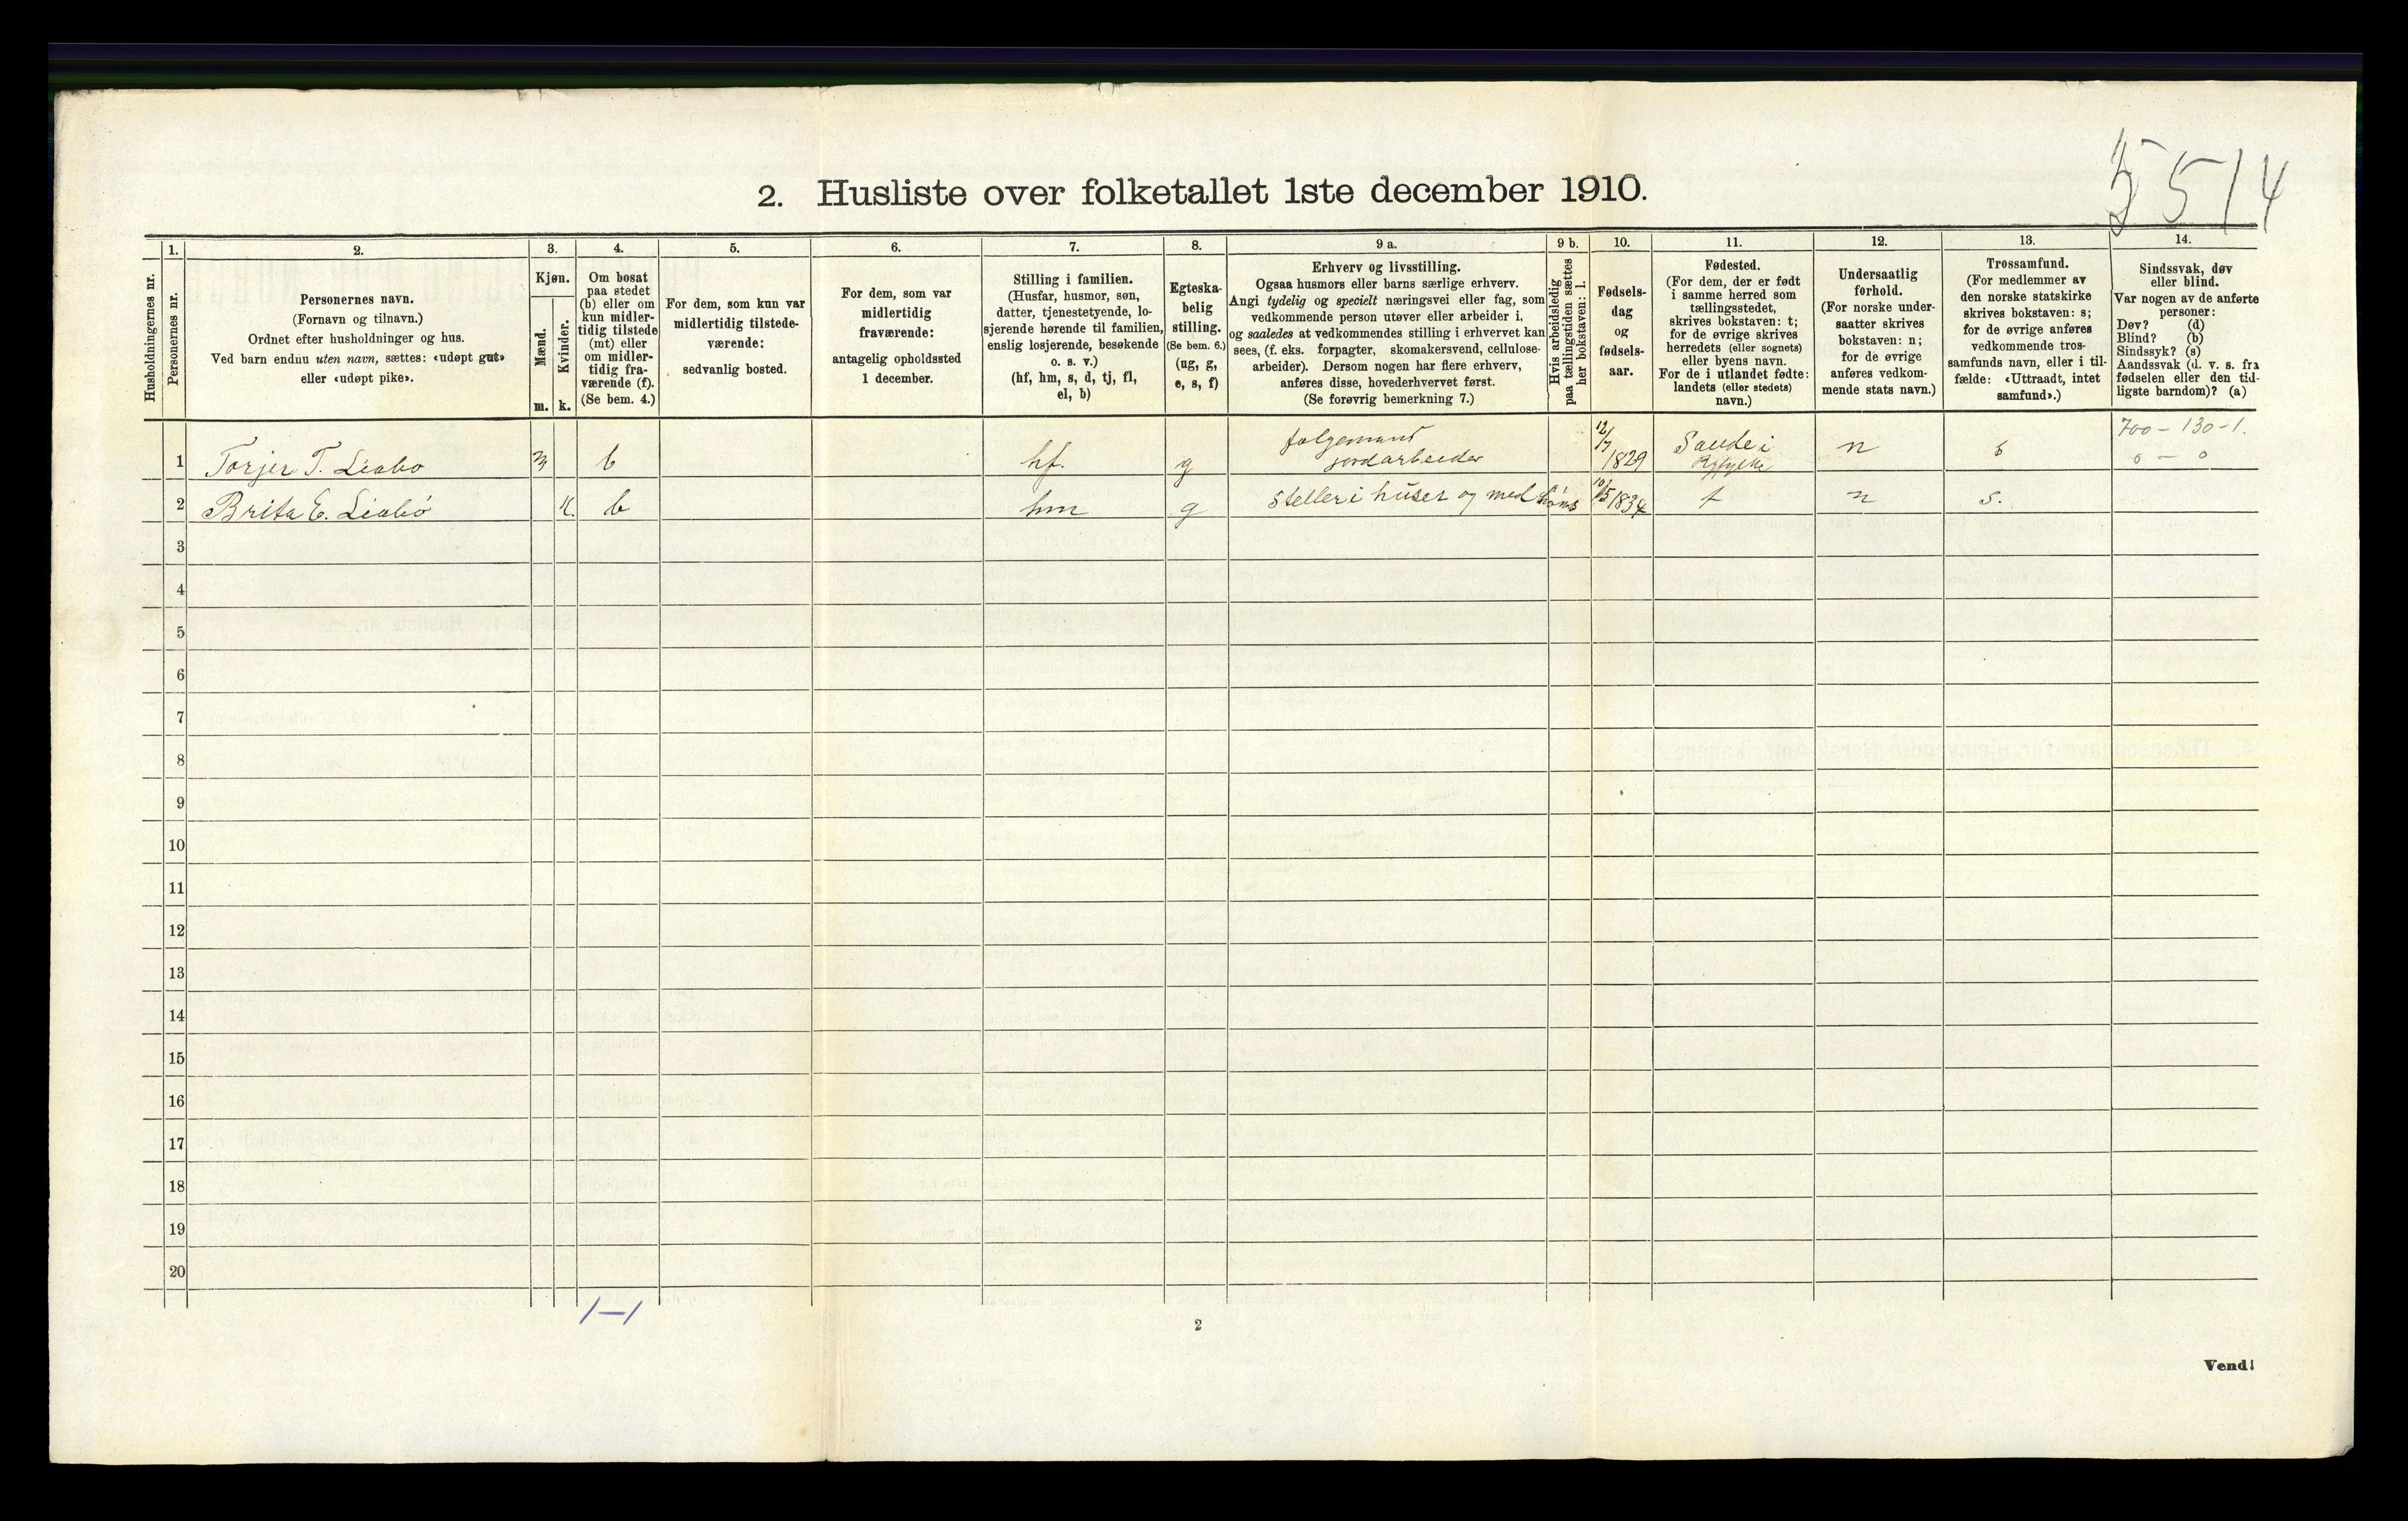 5514
2. Husliste over folketallet 1ste december 1910.
Husholdningernes nr.
1.
Personernes nr.
2.
Personernes navn.
(Fornavn og tilnavn.)
Ordnet efter husholdninger og hus.
Ved barn endnu uten navn, sættes: «udøpt gut»
eller «udøpt pike».
3.
Kjøn.
Mænd.
Kvinder.
m. k.
4.
Om bosat
paa stedet
(b) eller om
kun midler-
tidig tilstede
(mt) eller
om midler-
tidig fra-
værende (f).
(Se bem. 4.)
5.
For dem, som kun var
midlertidig tilstede-
værende:
sedvanlig bosted.
6.
For dem, som var
midlertidig
fraværende:
antagelig opholdssted
1 december.
7.
Stilling i familien.
(Husfar, husmor, søn,
datter, tjenestetyende, lo-
sjerende hørende til familien,
enslig losjerende, besøkende
o. s. v.)
(hf, hm, s, d, tj, fl,
el, b)
8.
Egteska-
belig
stilling.
(Se bem. 6.)
(ug, g,
e, s, f)
9 a.
Erhverv og livsstilling.
Ogsaa husmors eller barns særlige erhverv.
Angi tydelig og specielt næringsvei eller fag, som
vedkommende person utøver eller arbeider i,
og saaledes at vedkommendes stilling i erhvervet kan
sees, (f. eks. forpagter, skomakersvend, cellulose-
arbeider). Dersom nogen har flere erhverv,
anføres disse, hovederhvervet først.
(Se forøvrig bemerkning 7.)
9 b.
Hvis arbeidsledig
paa tællingstiden sættes
her bokstaven: l.
10.
Fødsels-
dag
og
fødsels-
aar.
11.
Fødested.
(For dem, der er født
i samme herred som
tællingsstedet,
skrives bokstaven: t;
for de øvrige skrives
herredets (eller sognets)
eller byens navn.
For de i utlandet fødte:
landets (eller stedets)
navn.)
12.
Undersaatlig
forhold.
(For norske under-
saatter skrives
bokstaven: n;
for de øvrige
anføres vedkom-
mende stats navn.)
13.
Trossamfund.
(For medlemmer av
den norske statskirke
skrives bokstaven: s;
for de øvrige anføres
vedkommende tros-
samfunds navn, eller i til-
fælde: «Uttraadt, intet
samfund».)
14.
Sindssvak, døv
eller blind.
Var nogen av de anførte
personer:
Døv? (d)
Blind? (b)
Sindssyk? (s)
Aandssvak (d. v. s. fra
fødselen eller den tid-
ligste barndom)? (a)
700 – 130 – 1.
0 – 0
1 Torjer T. Liabø m b hf. g folgemand jordarbeider 12/7 1829 Saude i Ryfylke n s
2 Brita E. Liabø k. b hm g steller i huset og med høns 10/5 1834 t n s.
3
4
5
6
7
8
9
10
11
12
13
14
15
16
17
18
19
20
1–1
2
Vend!